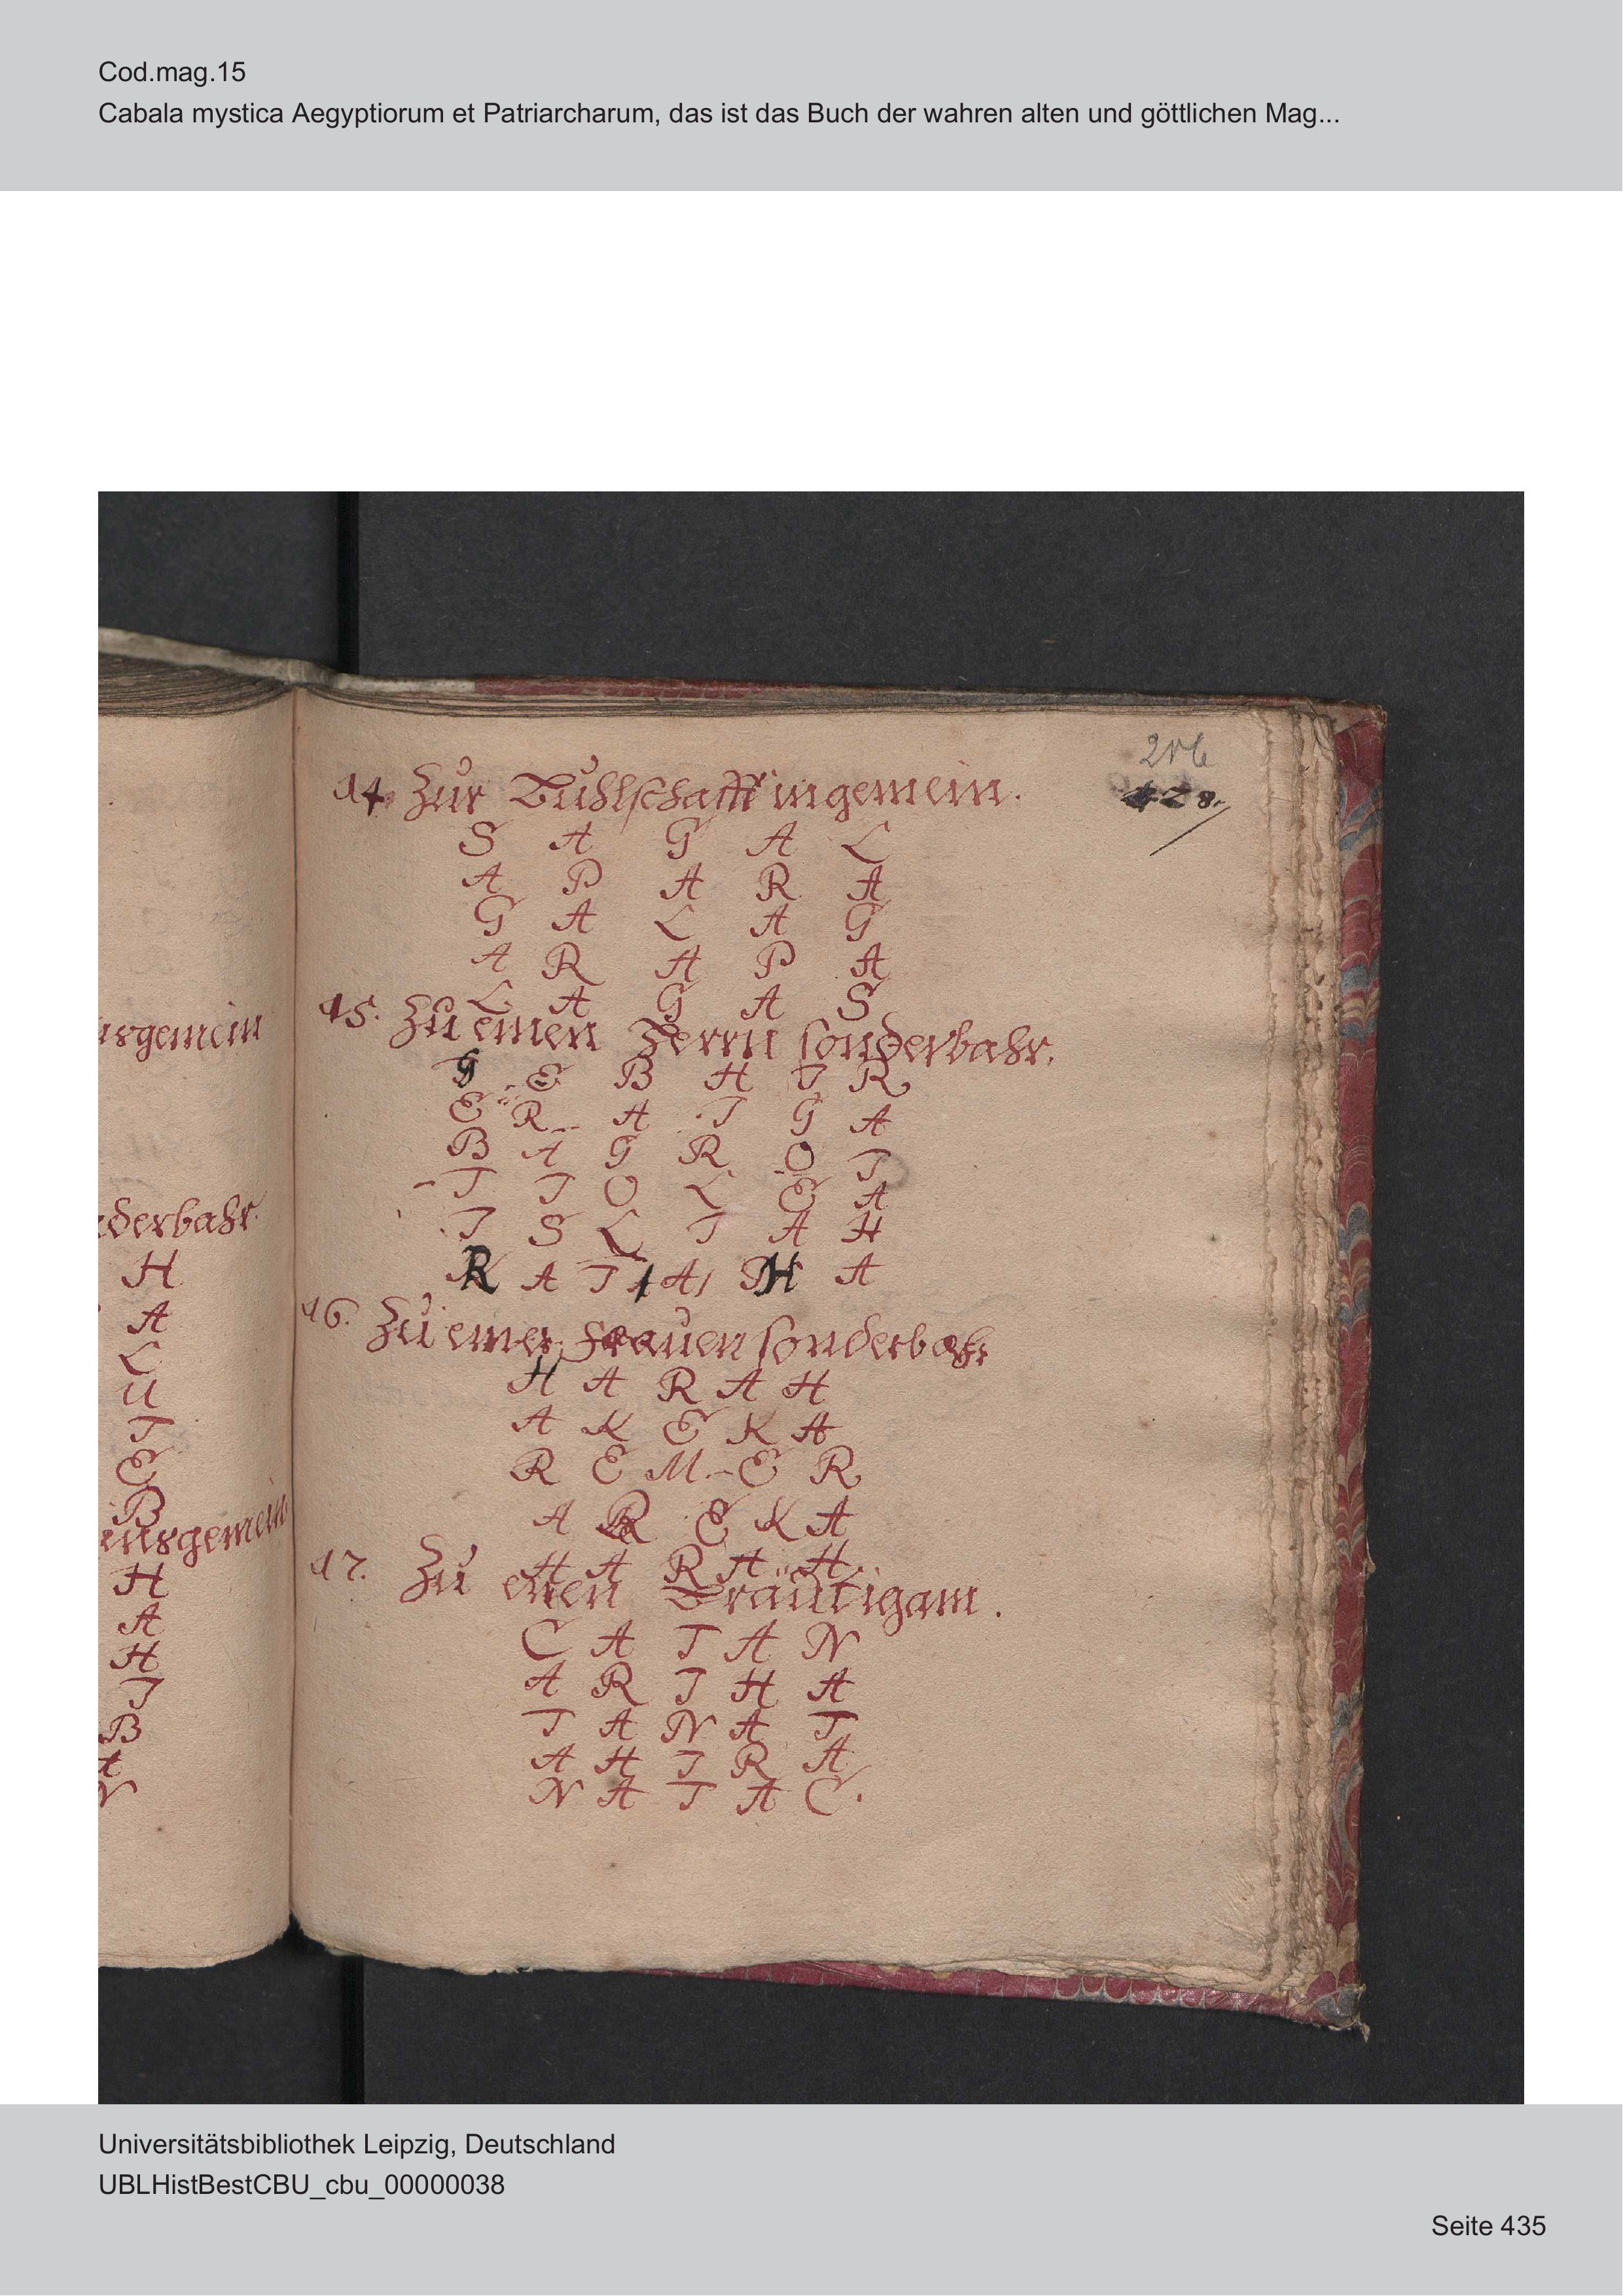 Cod.mag.15
Cabala mystica Aegyptiorum et Patriarcharum, das ist das Buch der wahren alten und göttlichen Mag...
216
428.
14. Zur Buhlschafft ingemein.
S A G A L
A P A R A
G A L A G
A R A P A
L A G A S
15. Zu einen Herrn sonderbahr.
G E B H I R
E R A I G A
B A G R O I
I I O L E A
I S L I A H
R A I A H A
16. Zu einer Frauen sonderbahr
H A R A H
A K E K A
R E M E R
A R E K A
H A R A H.
17. Zu einen Bräutigam.
C A T A N
A R I H A
T A N A T
A H I R A
N A T A C.
nsgemein
nderbahr.
H
A
L
U
T
E
B
insgemein
H
A
H
I
B
A
N
Universitätsbibliothek Leipzig, Deutschland
UBLHistBestCBU_cbu_00000038
Seite 435